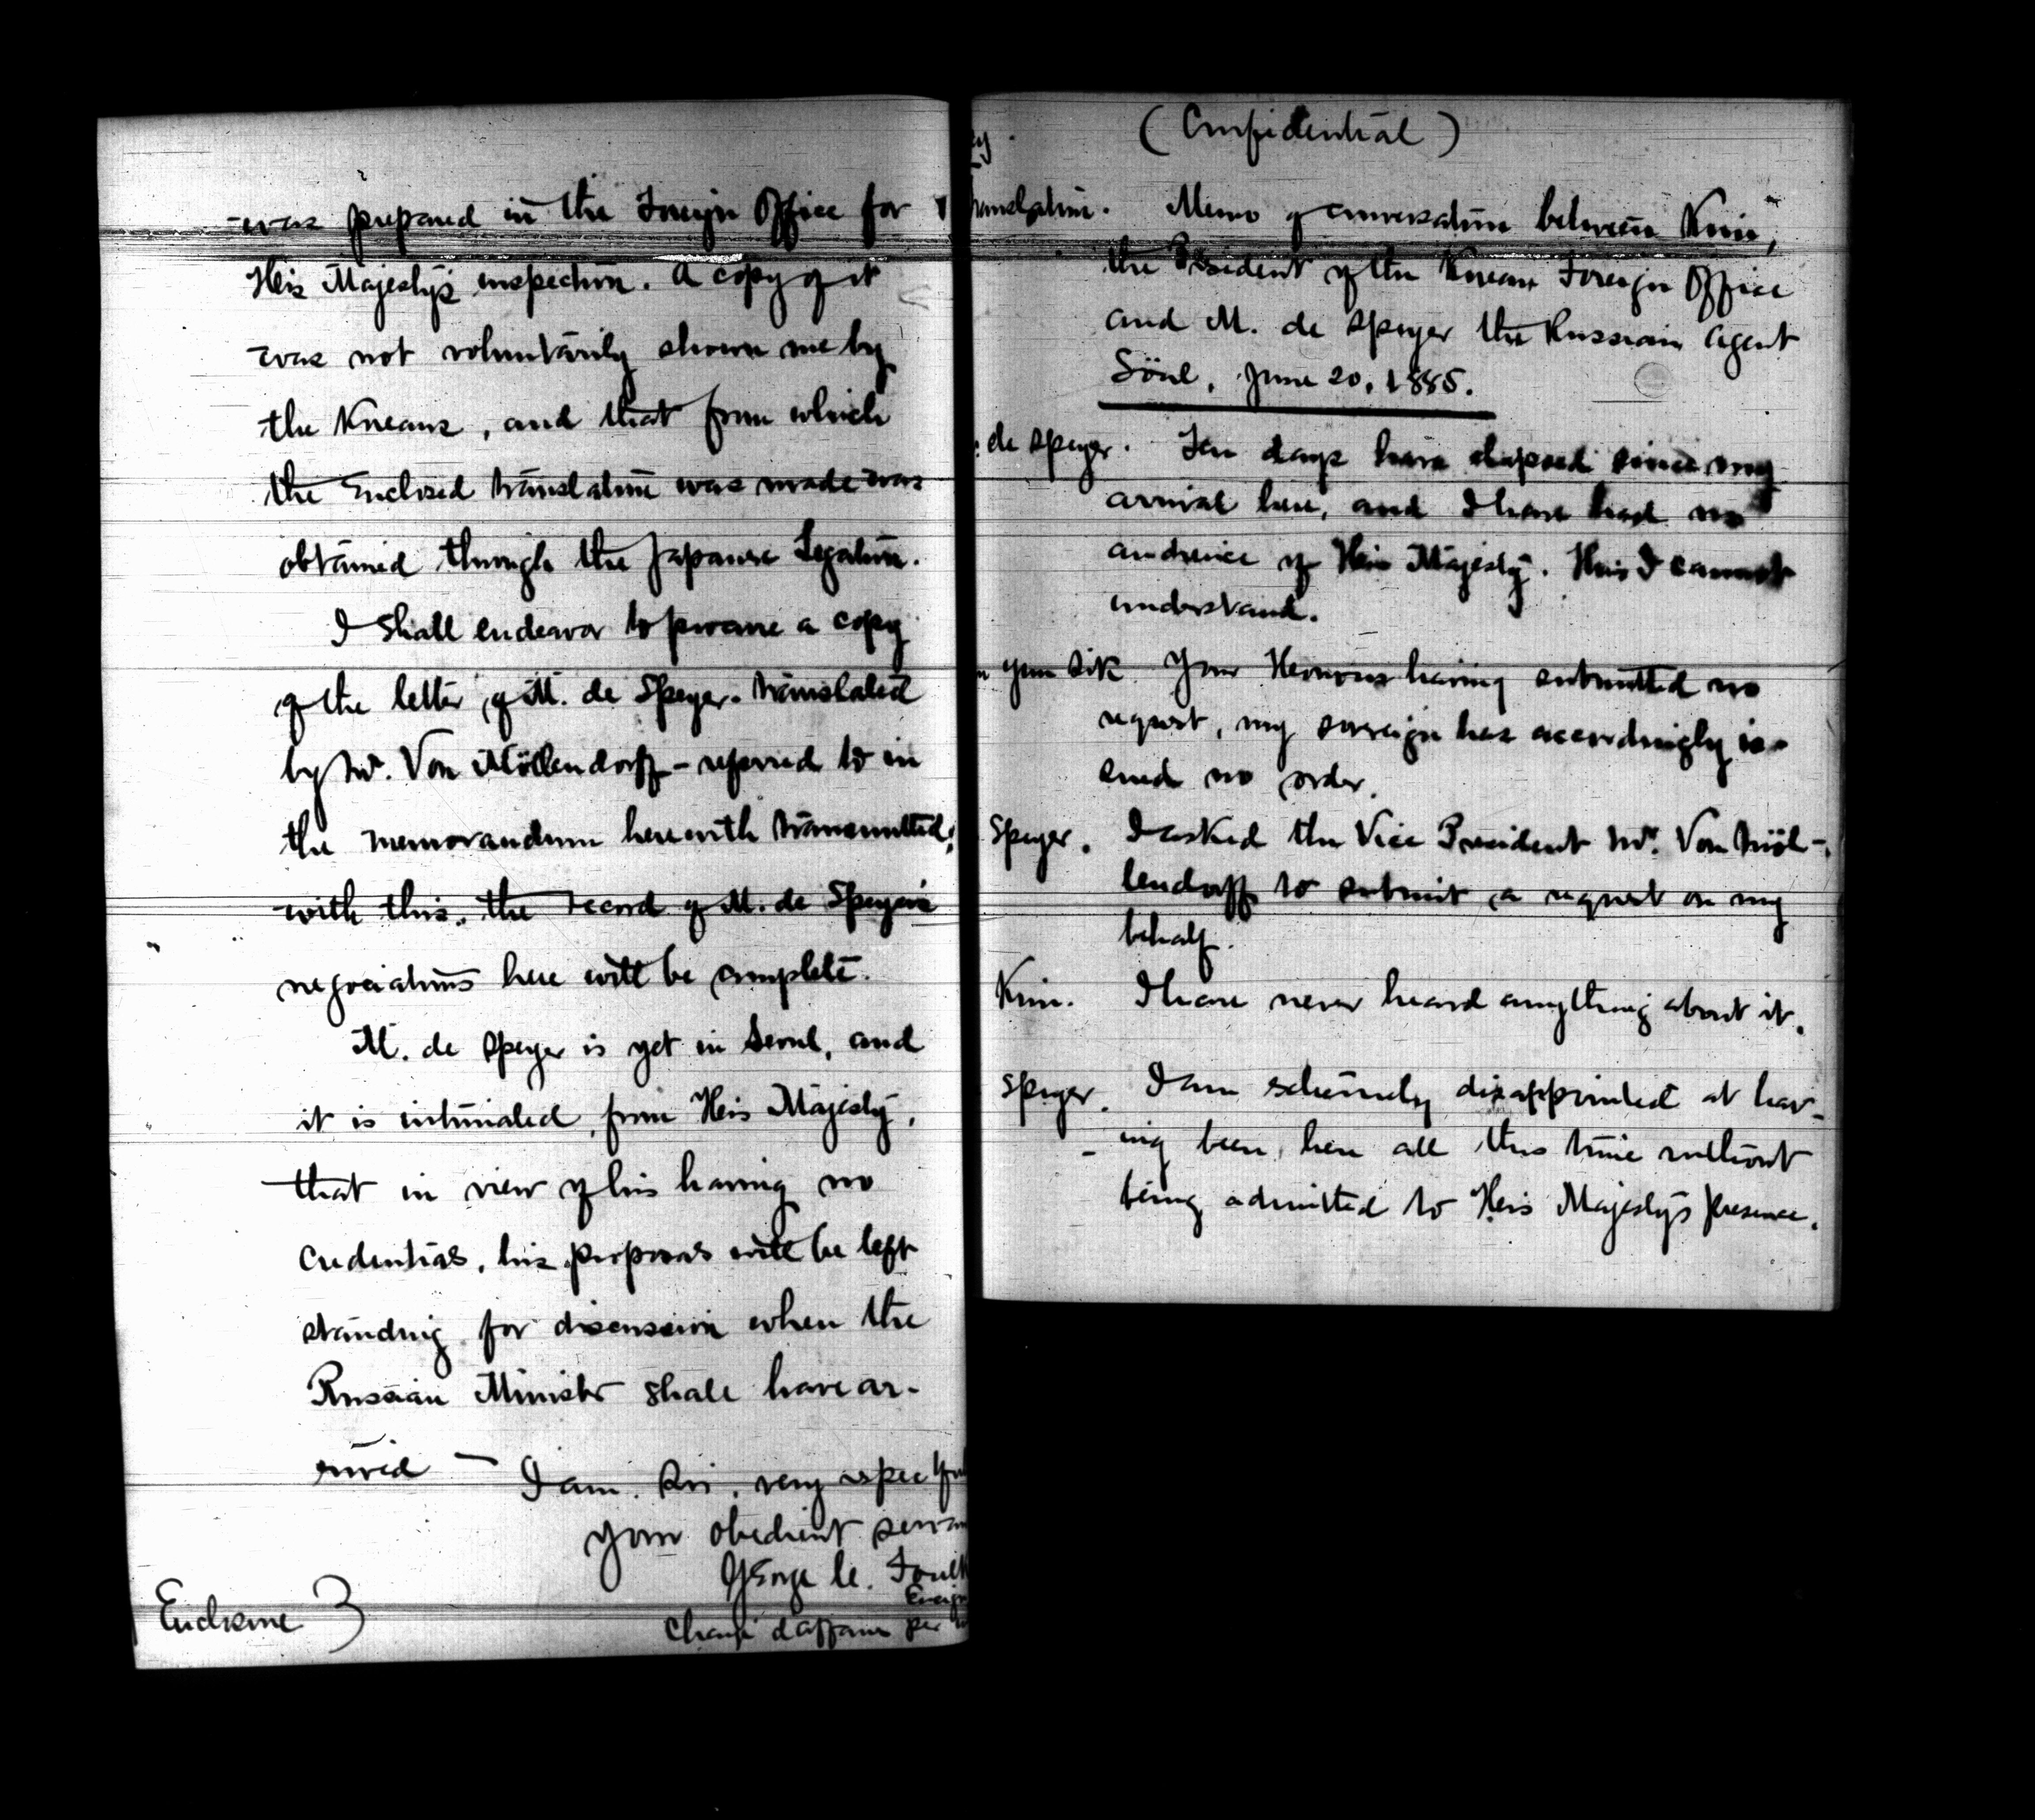 was prepared in the Foreign Office for
His Majesty's inspection. A copy of it
was not voluntarily shown me by
the Koreans, and that from which
the enclosed translation was made was
obtained through the Japanese Legation.
I shall endeavor to procure a copy
of the letter of M. de Speyer - translated
by Mr. Von Möllendorff - referred to in
the memorandum herewith transmitted;
with this, the record of M. de Speyer's
negociations here will be complete.
M. de Speyer is yet in Seoul, and
it is intimated, from His Majesty,
that in view of his having no
credentials, his proposals will be left
standing for discussion when the
Russian Minister shall have ar-
rived —
I am, Sir, very respectfu
your obedient servan
George C. Foulk
Ensign
Chargé d'affaires per
Enclosure 3
(Confidential)
ranslation. Memo of conversation between Kim,
the President of the Korean Foreign Office
and M. de Speyer the Russian Agent
Söul, June 20, 1885.
de Speyer. Ten days have elapsed since my
arrival here, and I have had no
audience of His Majesty. This I cannot
understand.
Yun Sik. Your Honour having submitted no
request, my sovereign has accordingly is-
sued no order.
Speyer. I asked the Vice President Mr. Von Möl-
lendorff to submit a request on my
behalf.
Kim. I have never heard anything about it.
Speyer. I am extremely disappointed at hav-
ing been here all this time without
being admitted to His Majesty's presence.